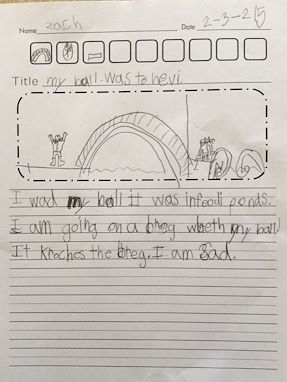 Name zach Date 2-3-215
Title my ball. was to hevi.
I wad my ball it was infedi ponds.
I am going on a breg wheth my ball!
It kreches the breg. I am Sad.